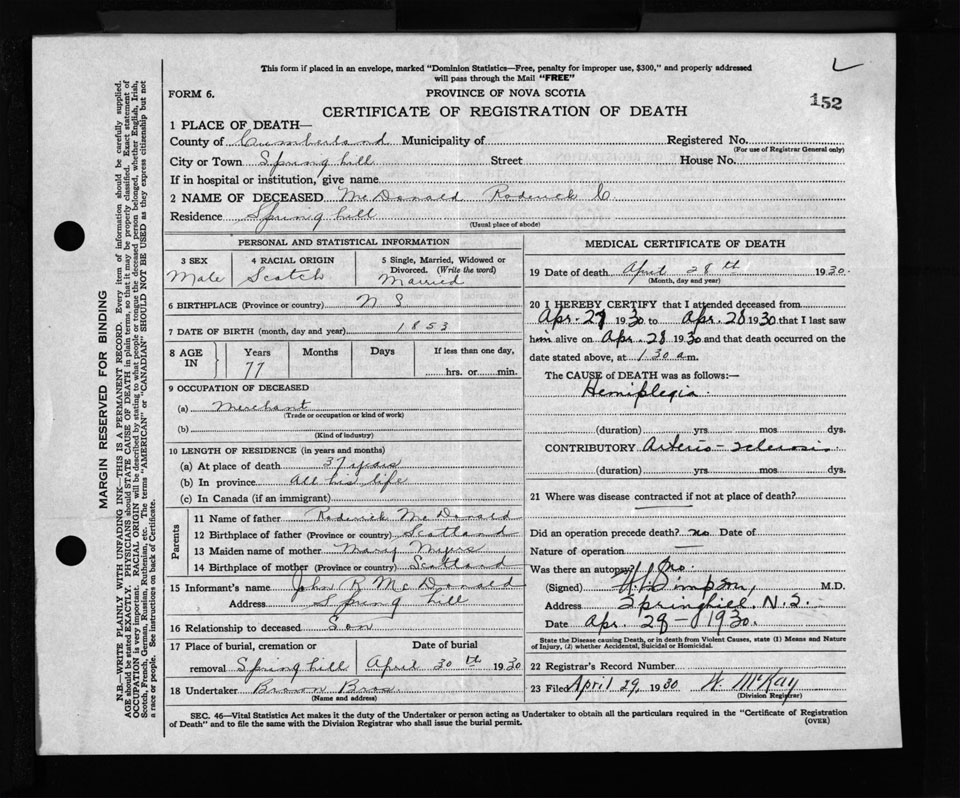 This form if placed in an envelope, marked "Dominion Statistics—Free, penalty for improper use, $300," and properly addressed
will pass through the Mail "FREE"
L
FORM 6.
PROVINCE OF NOVA SCOTIA
152
CERTIFICATE OF REGISTRATION OF DEATH
1 PLACE OF DEATH—
County of Cumberland Municipality of Registered No.
(For use of Registrar General only)
City or Town Spring hill Street House No.
If in hospital or institution, give name
2 NAME OF DECEASED McDonald Roderick C
Residence Spring hill
(Usual place of abode)
PERSONAL AND STATISTICAL INFORMATION
3 SEX 4 RACIAL ORIGIN 5 Single, Married, Widowed or
Divorced. (Write the word)
Male Scotch Married
6 BIRTHPLACE (Province or country) N S
7 DATE OF BIRTH (month, day and year) 1853
8 AGE IN Years Months Days If less than one day,
77 hrs. or min.
9 OCCUPATION OF DECEASED
(a) Merchant
(Trade or occupation or kind of work)
(b)
(Kind of industry)
10 LENGTH OF RESIDENCE (in years and months)
(a) At place of death 37 years
(b) In province All his life
(c) In Canada (if an immigrant)
Parents
11 Name of father Roderick McDonald
12 Birthplace of father (Province or country) Scotland
13 Maiden name of mother Mary
14 Birthplace of mother (Province or country) Scotland
15 Informant's name John R McDonald
Address Spring hill
16 Relationship to deceased Son
17 Place of burial, cremation or Date of burial
removal Spring hill April 30 th 1930
18 Undertaker Brown Bros
(Name and address)
MEDICAL CERTIFICATE OF DEATH
19 Date of death April 28 th 1930.
(Month, day and year)
20 I HEREBY CERTIFY that I attended deceased from
Apr. 1930 to Apr. 28 1930 that I last saw
him alive on Apr. 28 1930 and that death occurred on the
date stated above, at 1 30 a m.
The CAUSE of DEATH was as follows:—
Hemiplegia.
(duration) yrs. mos dys.
CONTRIBUTORY Arterio-sclerosis
(duration) yrs. mos. dys.
21 Where was disease contracted if not at place of death?
Did an operation precede death? no Date of
Nature of operation —
Was there an autopsy? No.
(Signed) Simpson, M.D.
Address Springhill. N. S.
Date Apr. 28—1930.
State the Disease causing Death, or in death from Violent Causes, state (1) Means and Nature
of Injury, (2) whether Accidental, Suicidal or Homicidal.
22 Registrar's Record Number
23 Filed April 29, 1930 W. McKay
(Division Registrar)
SEC. 46—Vital Statistics Act makes it the duty of the Undertaker or person acting as Undertaker to obtain all the particulars required in the "Certificate of Registration
of Death" and to file the same with the Division Registrar who shall issue the burial permit. (OVER)
MARGIN RESERVED FOR BINDING
N.B.—WRITE PLAINLY WITH UNFADING INK—THIS IS A PERMANENT RECORD. Every item of information should be carefully supplied.
AGE should be stated EXACTLY. PHYSICIANS should STATE CAUSE OF DEATH in plain terms, so that it may be properly classified. Exact statement of
OCCUPATION is very important. RACIAL ORIGIN will be described by stating to what people or tongue the deceased person belonged, whether English, Irish,
Scotch, French, German, Russian, Ruthenian, etc. The terms "AMERICAN" or "CANADIAN" SHOULD NOT BE USED as they express citizenship but not
a race or people. See instructions on back of Certificate.